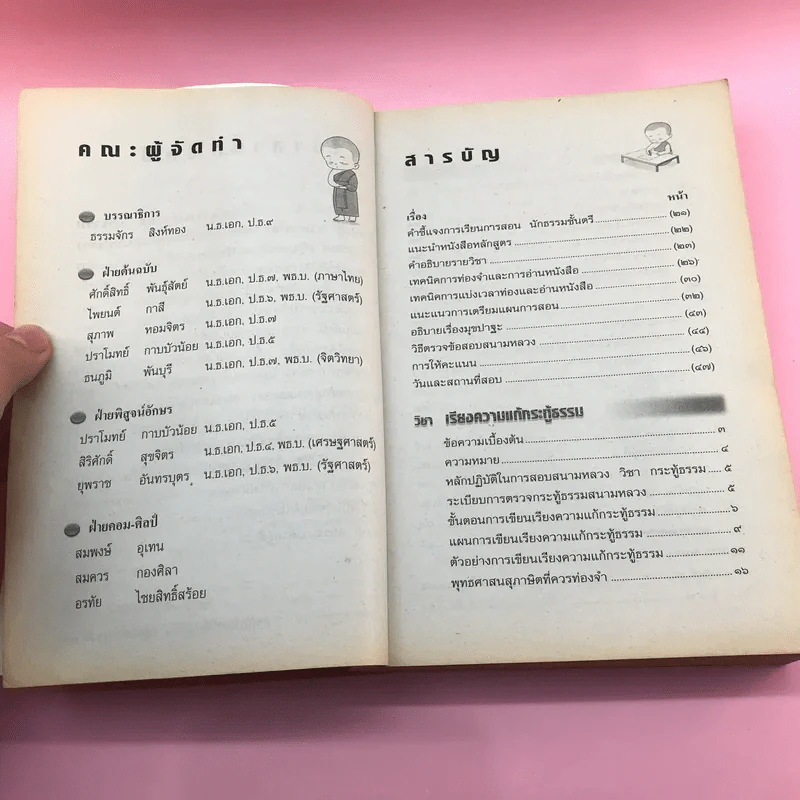 คณะผู้จัดทำ
บรรณาธิการ
ธรรมจักร สิงห์ทอง น.ธ.เอก, ป.ธ.๙
ฝ่ายต้นฉบับ
ศักดิ์สิทธิ์ พันธุ์สัตย์ น.ธ.เอก, ป.ธ.๗, พธ.บ. (ภาษาไทย)
ไพยนต์ กาสี น.ธ.เอก, ป.ธ.๖, พธ.บ. (รัฐศาสตร์)
สุภาพ หอมจิตร น.ธ.เอก, ป.ธ.๗
ปราโมทย์ กาบบัวน้อย น.ธ.เอก, ป.ธ.๕
ธนภูมิ พันบุรี น.ธ.เอก, ป.ธ.๗, พธ.บ. (จิตวิทยา)
ฝ่ายพิสูจน์อักษร
ปราโมทย์ กาบบัวน้อย น.ธ.เอก, ป.ธ.๕
สิริศักดิ์ สุขจิตร น.ธ.เอก, ป.ธ.๔, พธ.บ. (เศรษฐศาสตร์)
ยุพราช อันทรบุตร น.ธ.เอก, ป.ธ.๖, พธ.บ. (รัฐศาสตร์)
ฝ่ายคอม-ศิลป์
สมพงษ์ อุเทน
สมควร กองศิลา
อรทัย ไชยสิทธิ์สร้อย
สารบัญ
เรื่อง หน้า
คำชี้แจงการเรียนการสอน นักธรรมชั้นตรี (๒๑)
แนะนำหนังสือหลักสูตร (๒๒)
คำอธิบายรายวิชา (๒๓)
เทคนิคการท่องจำและการอ่านหนังสือ (๒๖)
เทคนิคการแบ่งเวลาท่องและอ่านหนังสือ (๓๐)
แนะแนวการเตรียมแผนการสอน (๓๒)
อธิบายเรื่องมุขปาฐะ (๔๓)
วิธีตรวจข้อสอบสนามหลวง (๔๔)
การให้คะแนน (๔๖)
วันและสถานที่สอบ (๔๗)
วิชา เรียงความแก้กระทู้ธรรม
ข้อความเบื้องต้น ๓
ความหมาย ๔
หลักปฏิบัติในการสอบสนามหลวง วิชา กระทู้ธรรม ๕
ระเบียบการตรวจกระทู้ธรรมสนามหลวง ๕
ขั้นตอนการเขียนเรียงความแก้กระทู้ธรรม ๖
แผนการเขียนเรียงความแก้กระทู้ธรรม ๙
ตัวอย่างการเขียนเรียงความแก้กระทู้ธรรม ๑๑
พุทธศาสนสุภาษิตที่ควรท่องจำ ๑๖